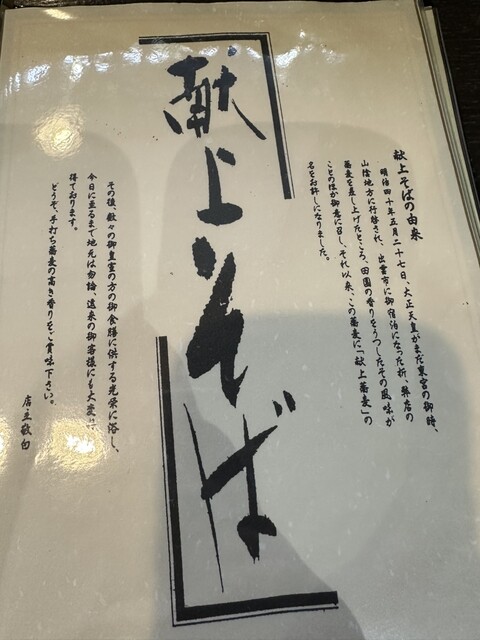 献上そば
献上そばの由来
明治四十年五月二十七日、大正天皇がまだ東宮の御時、
山陰地方に行啓され、出雲市に御宿泊になった折、弊店の
蕎麦を差し上げたところ、田園の香りをうつしたその風味が
ことのほか御意に召し、それ以来、この蕎麦に「献上蕎麦」の
名をお許しになりました。
その後、数々の御皇室の方の御食膳に供する光栄に浴し、
今日に至るまで地元は勿論、遠来の御客様にも大変
得ております。
どうぞ、手打ち蕎麦の高き香りをご賞味下さい。
店主敬白